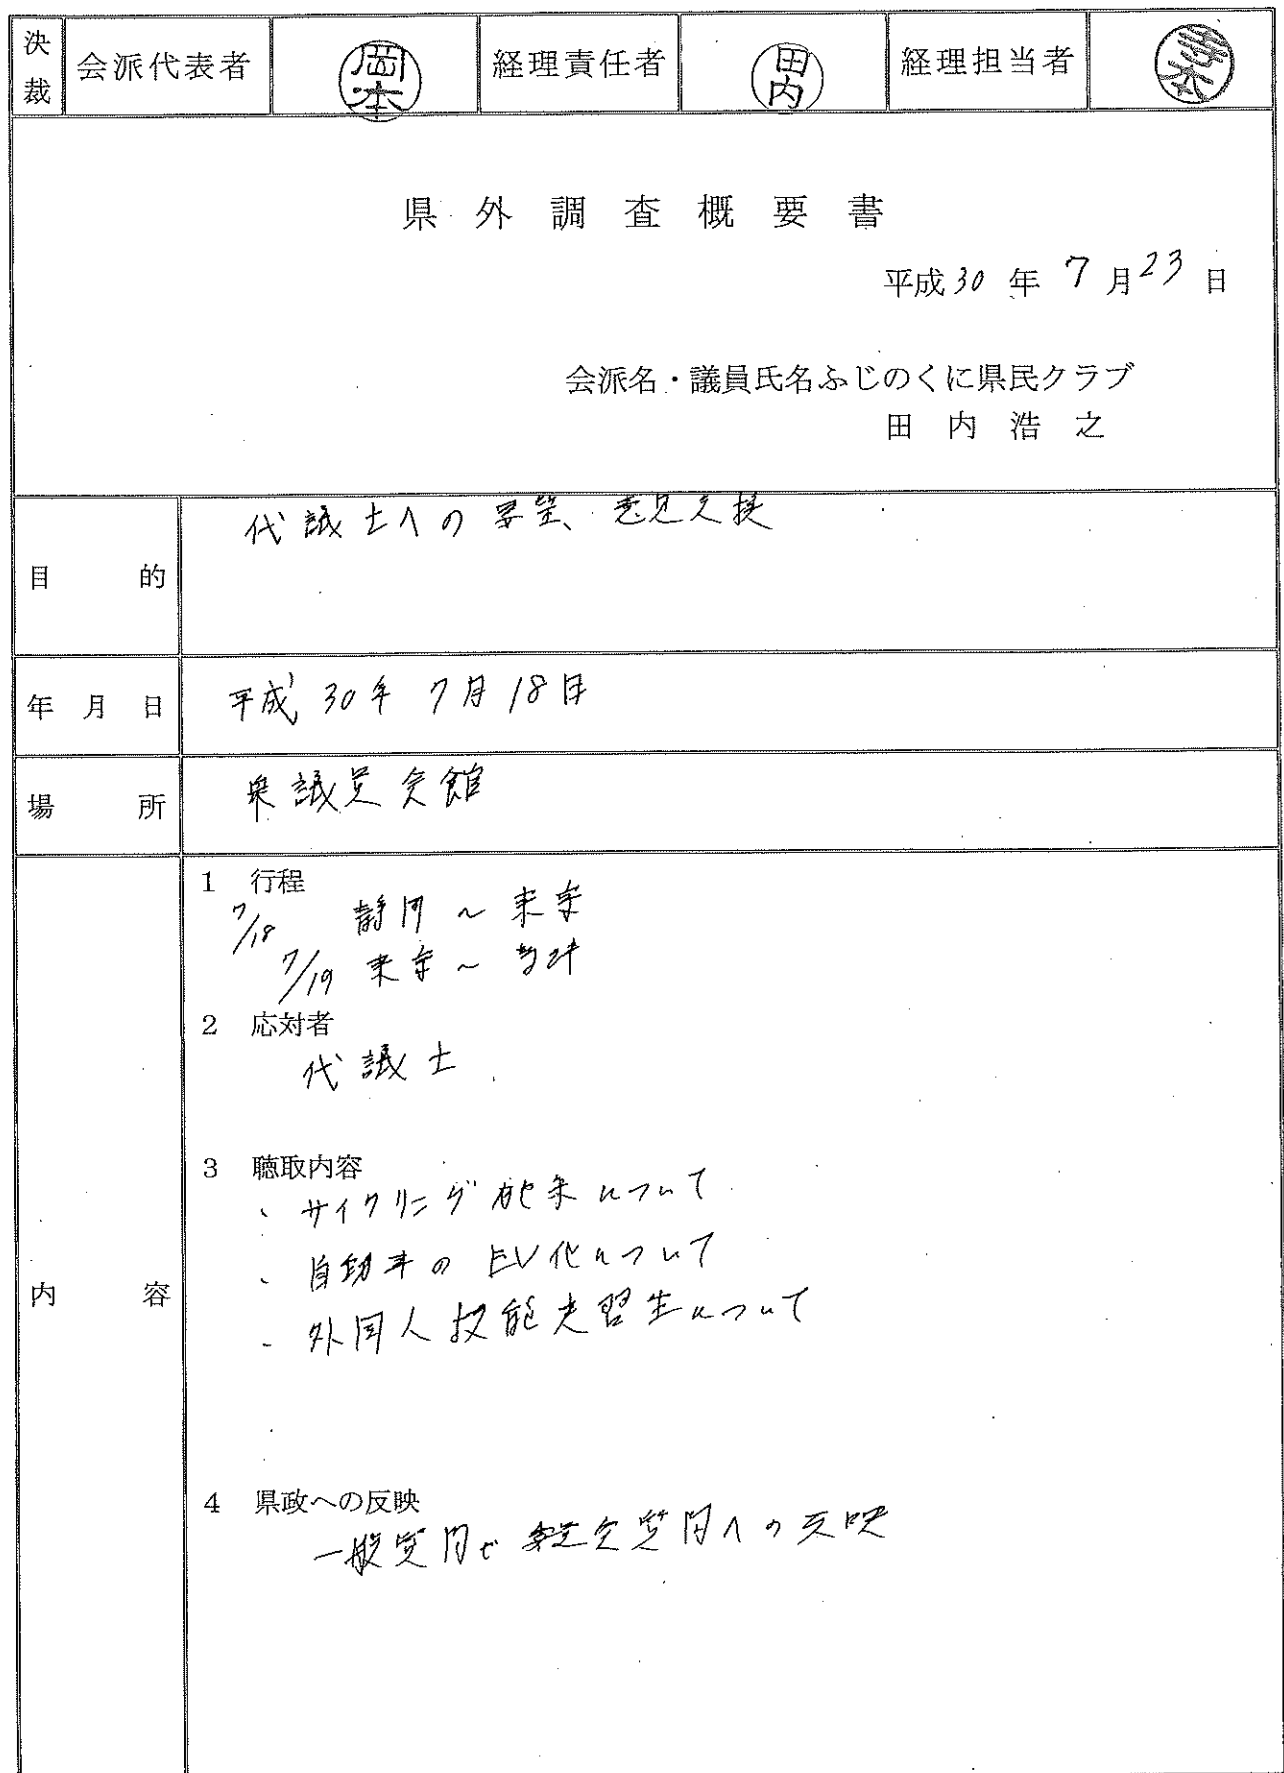 決裁 会派代表者 岡本 経理責任者 田内 経理担当者
県外調査概要書
平成30年7月23日
会派名・議員氏名ふじのくに県民クラブ
田内浩之
目的 代議士への要望、意見交換
年月日 平成30年7月18日
場所 衆議員会館
内容
1 行程
7/18 静岡～東京
7/19 東京～
2 応対者
代議士
3 聴取内容
・サイクリング施策について
・自動車のEV化について
・外国人技能実習生について
4 県政への反映
一般質問や委員会質問への反映